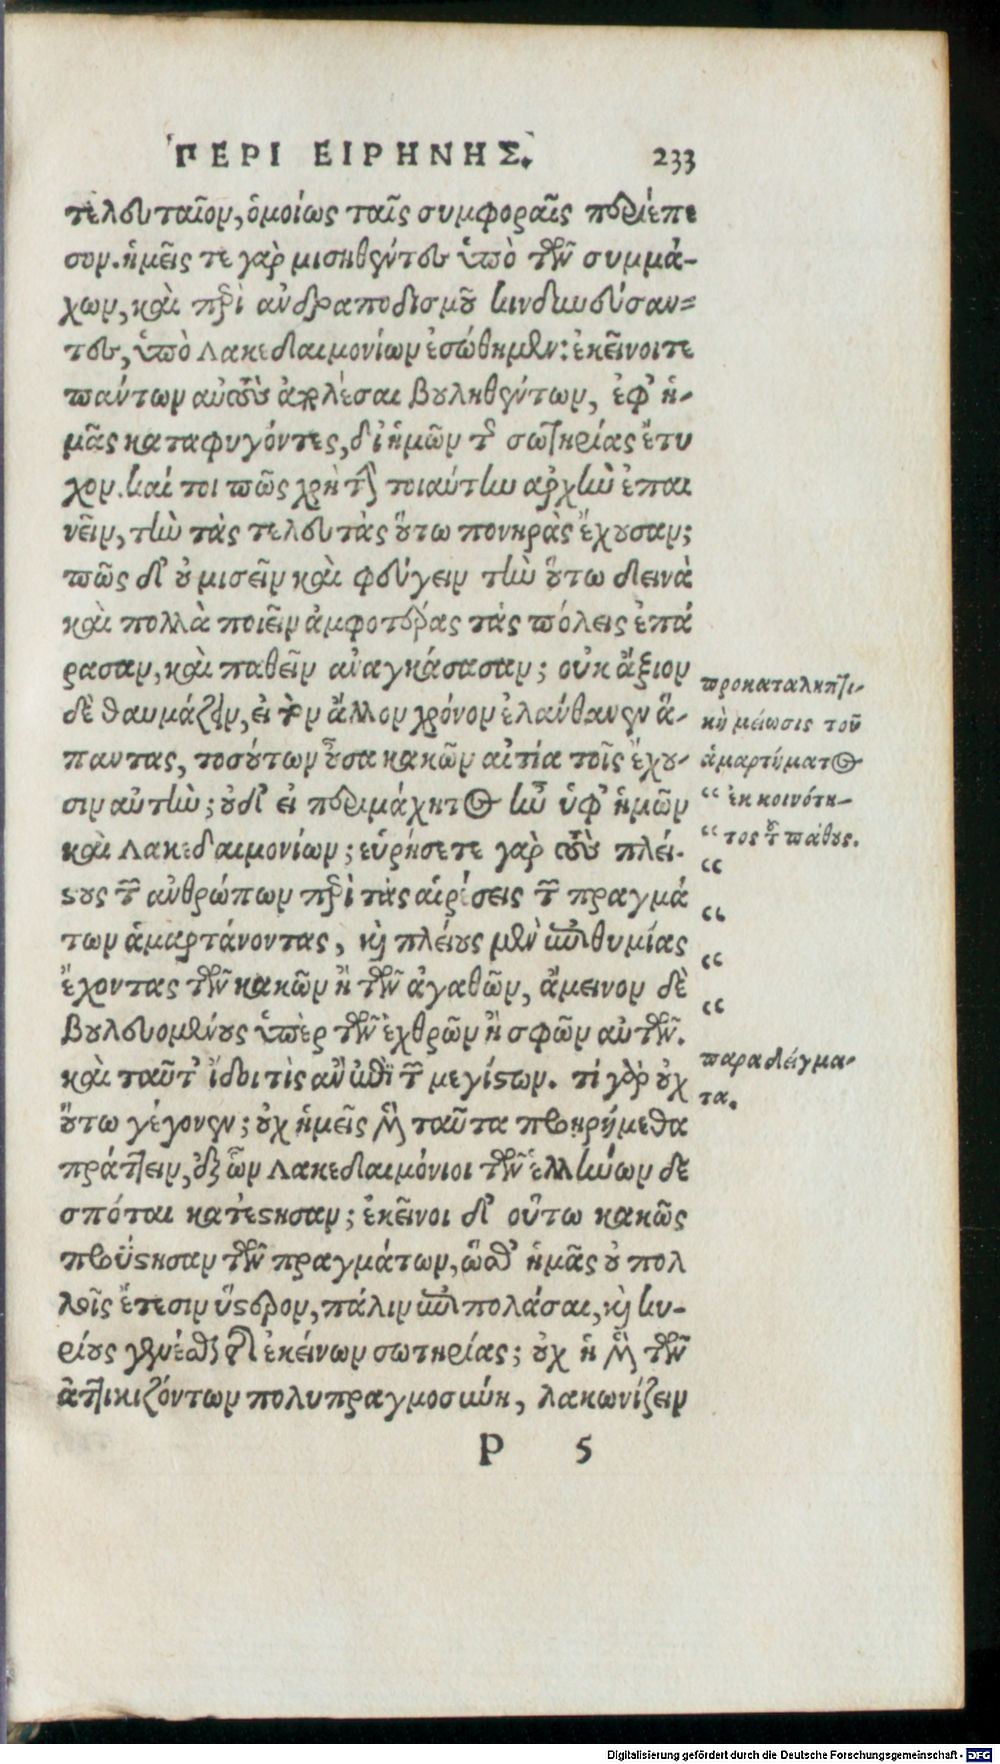 ΠΕΡΙ ΕΙΡΗΝΗΣ. 233
τελευταῖον, ὁμοίως ταῖς συμφοραῖς περιέπε
σον. ἡμεῖς τε γὰρ μισηθέντες ὑπὸ τῶν συμμά-
χων, καὶ περὶ ἀνδραποδισμοῦ κινδυνεύσαν-
τες, ὑπὸ Λακεδαιμονίων ἐσώθημεν: ἐκεῖνοί τε
πάντων αὐτοὺς ἀπολέσαι βουληθέντων, ἐφ' ἡ-
μᾶς καταφυγόντες, δι' ἡμῶν τῆς σωτηρίας ἔτυ
χον. καί τοι πῶς χρὴ τὴν τοιαύτην ἀρχὴν ἐπαι
νεῖν, τὴν τὰς τελευτὰς οὕτω πονηρὰς ἔχουσαν;
πῶς δ' οὐ μισεῖν καὶ φεύγειν τὴν οὕτω δεινὰ
καὶ πολλὰ ποιεῖν ἀμφοτέρας τὰς πόλεις ἐπά
ρασαν, καὶ παθεῖν ἀναγκάσασαν; οὐκ ἄξιον
δὲ θαυμάζειν, εἰ τὸν ἄλλον χρόνον ἐλάνθανεν ἅ-
παντας, τοσούτων οὖσα κακῶν αἰτία τοῖς ἔχου-
σιν αὐτήν; οὐδ' εἰ περιμάχητος ἦν ὑφ' ἡμῶν
καὶ Λακεδαιμονίων; εὑρήσετε γὰρ τοὺς πλεί-
στους τῶν ἀνθρώπων περὶ τὰς αἱρέσεις τῶν πραγμά
των ἁμαρτάνοντας, καὶ πλείους μὲν ἐπιθυμίας
ἔχοντας τῶν κακῶν ἢ τῶν ἀγαθῶν, ἄμεινον δὲ
βουλευομένους ὑπὲρ τῶν ἐχθρῶν ἢ σφῶν αὐτῶν.
καὶ ταῦτ' ἴδοι τὶς ἂν ἐπὶ τῶν μεγίστων. τί γὰρ οὐχ
οὕτω γέγονεν; οὐχ ἡμεῖς μὲν ταῦτα προῃρήμεθα
πράττειν, ἐξ ὧν Λακεδαιμόνιοι τῶν ἑλλήνων δε
σπόται κατέστησαν; ἐκεῖνοι δ' οὕτω κακῶς
προὔστησαν τῶν πραγμάτων, ὥσθ' ἡμᾶς οὐ πολ
λοῖς ἔτεσιν ὕστερον, πάλιν ἐπιπολάσαι, καὶ κυ-
ρίους γενέσθαι τῆς ἐκείνων σωτηρίας; οὐχ ἡ μὲν τῶν
ἀττικιζόντων πολυπραγμοσύνη, λακωνίζειν
P 5
προκαταληπτι-
κὴ μείωσις τοῦ
ἁμαρτήματος
“ ἐκ κοινότη-
“ τος τοῦ πάθους.
“
“
“
“
παραδείγμα-
τα.
Digitalisierung gefördert durch die Deutsche Forschungsgemeinschaft - DFG